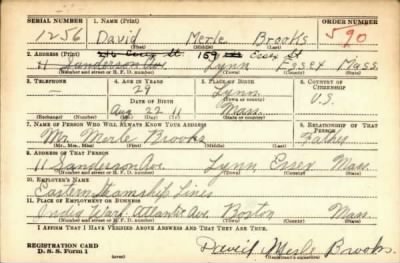 SERIAL NUMBER 1. NAME (Print) ORDER NUMBER
1256 David Merle Brooks 590
(First) (Middle) (Last)
2. ADDRESS (Print) 159 Essex St
11 Sanderson Ave. Lynn Essex Mass.
(Number and street or R. F. D. number) (Town) (County) (State)
3. TELEPHONE 4. AGE IN YEARS 5. PLACE OF BIRTH 6. COUNTRY OF CITIZENSHIP
29 Lynn
DATE OF BIRTH (Town or county)
Aug 22 11 Mass. U.S.
(Exchange) (Number) (Mo.) (Day) (Yr.) (State or country)
7. NAME OF PERSON WHO WILL ALWAYS KNOW YOUR ADDRESS 8. RELATIONSHIP OF THAT PERSON
Mr. Merle Brooks Father
(Mr., Mrs., Miss) (First) (Middle) (Last)
9. ADDRESS OF THAT PERSON
11 Sanderson Ave. Lynn, Essex Mass.
(Number and street or R. F. D. number) (Town) (County) (State)
10. EMPLOYER'S NAME
Eastern Steamship Lines
11. PLACE OF EMPLOYMENT OR BUSINESS
India Wharf Atlantic Ave. Boston Mass.
(Number and street or R. F. D. number) (Town) (County) (State)
I AFFIRM THAT I HAVE VERIFIED ABOVE ANSWERS AND THAT THEY ARE TRUE.
REGISTRATION CARD
D. S. S. Form 1 David Merle Brooks
(Registrant's signature)